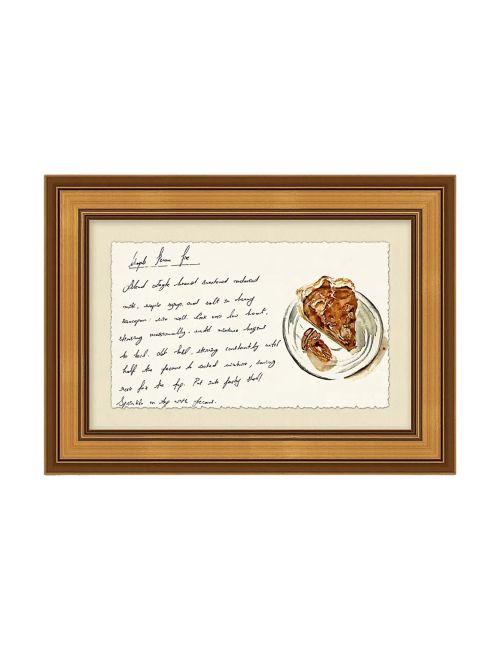 Maple Pecan Pie
Blend Eagle brand sweetened condensed
milk, maple syrup, and salt in heavy
saucepan: mix well. Cook over low heat,
stirring occasionally, until mixture begins
to boil. boil, stirring constantly until
half the pecans to cooked mixture, saving
rest for the top. Put into pastry shell
Sprinkle on top with pecans.